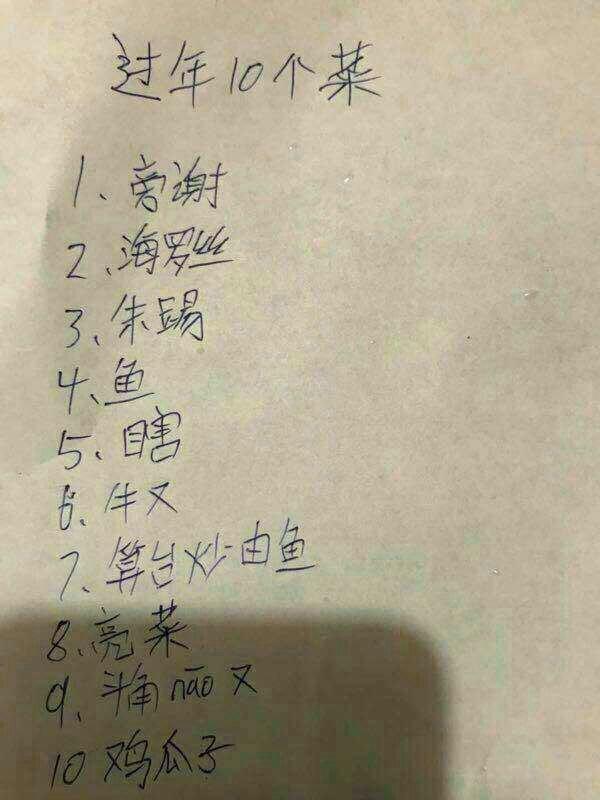 过年10个菜
1、旁谢
2、海罗丝
3、朱踢
4、鱼
5、瞎
6、牛又
7、算台炒由鱼
8、亮菜
9、斗角nāo又
10鸡瓜子